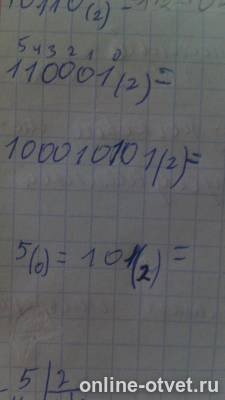 10110(2)=
5 4 3 2 1 0
110001(2)=
100010101(2)=
5(6)=101(2)=
5 | 2
online-otvet.ru